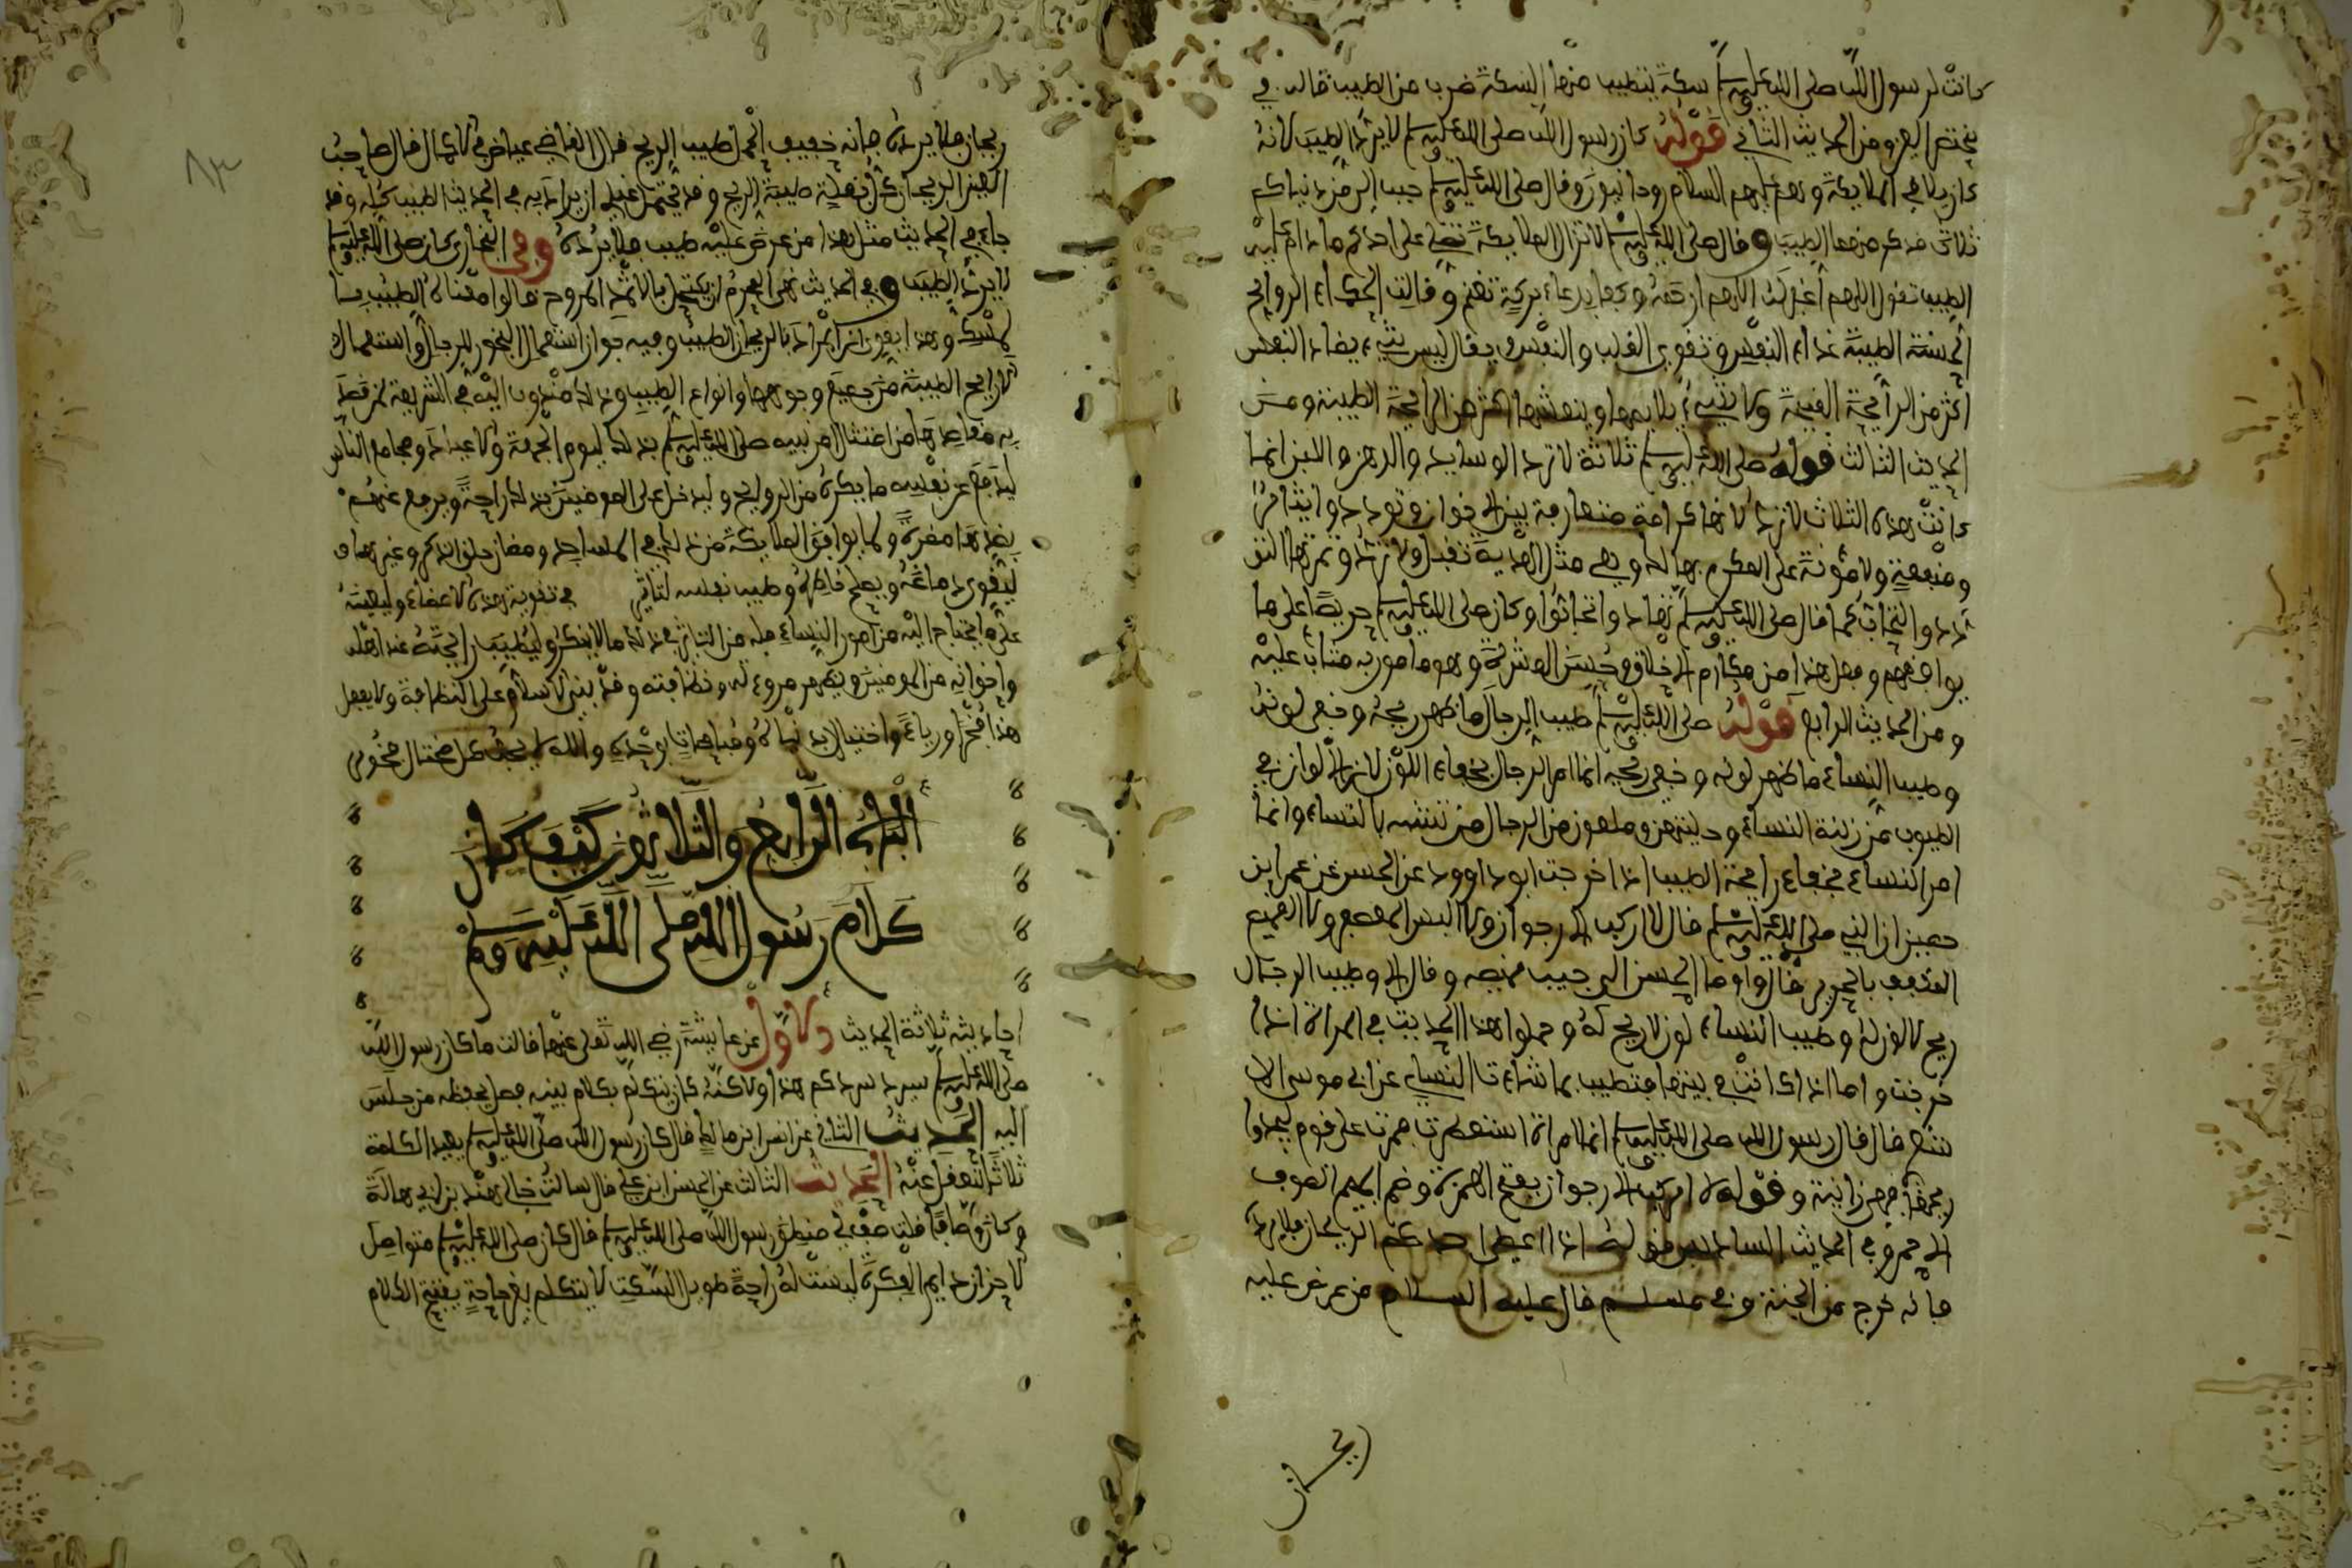 كانت لرسول الله صلى الله عليه وسلم سكة يتطيب منها السكة ضرب من الطيب قاله في
مختصر العين ومن الحديث الثاني قوله كان رسول الله صلى الله عليه وسلم لا يرد الطيب لانه
كان يلاقي الملايكة وهم عليهم السلام روحانيون وقال صلى الله عليه وسلم حبب الي من دنياكم
ثلاث فذكر منها الطيب وقال صلى الله عليه وسلم لا تزال الملايكة تصلي على احدكم ما دام عليه
الطيب تقول اللهم اغفر له اللهم ارحمه وكفا بدعاء بركة تغنم وقالت الحكماء الروايح
الحسنة الطيبة غذاء النفس وتقوي القلب والنفس ويقال ليس شيء يضاد النفس
اكثر من الرايحة القبيحة ولا شيء يلايمها وينعشها اكثر من الرايحة الطيبة ومن
الحديث الثالث قوله صلى الله عليه وسلم ثلاثة لا ترد الوسايد والدهن واللبن انما
كانت هذه الثلاث لا ترد لانها كرامة متعارفة بين الاخوان وتودد وايثار
ومنفعة ولا مؤنة على المكرم بها له وهي مثل الهدية تقبل ولا ترد وثمرتها التو
ادد والتحاب كما قال صلى الله عليه وسلم تهادوا تحابوا وكان صلى الله عليه وسلم حريصا على ما
يوافقهم وفعل هذا من مكارم الاخلاق وحسن العشرة وهو مامور به مثاب عليه
ومن الحديث الرابع قوله صلى الله عليه وسلم طيب الرجال ما ظهر ريحه وخفي لونه
وطيب النساء ما ظهر لونه وخفي ريحه انما امر الرجال بخفاء اللون لان الالوان في
الطيوب من زينة النساء وحليتهن وملعون من الرجال من تشبه بالنساء وانما
امر النساء بخفاء رايحة الطيب اذا خرجت ابو داوود عن الحسن عن عمران
حصين ان النبي صلى الله عليه وسلم قال لا اركب الارجوان ولا البس المعصفر ولا القميص
المكفف بالحرير قال واوما الحسن الى جيب قميصه وقال الا وطيب الرجال
ريح لا لون له وطيب النساء لون لا ريح له وحملوا هذا الحديث في المراة اذا
خرجت واما اذا كانت في بيتها فتطيب بما شاءت النساي عن ابي موسى الا
شعري قال قال رسول الله صلى الله عليه وسلم ايما امراة استعطرت فمرت على قوم ليجدوا
ريحها فهي زانية وقوله لا اركب الارجوان بفتح الهمزة وضم الجيم الصوف
الاحمر وفي الحديث السادس قوله اذا اعطي احدكم الريحان فلا يرده
فانه خرج من الجنة وفي مسلم قال عليه السلام من عرض عليه
ريحان
٨٣
ريحان فلا يرده فانه خفيف المحمل طيب الريح قال القاضي عياض في الاكمال قال صاحب
العين الريحان كل بقلة طيبة الريح وقد يحتمل عندي ان يراد به في الحديث الطيب كله وقد
جاء في الحديث مثل هذا من عرض عليه طيب فلا يرده وفي البخاري كان صلى الله عليه وسلم
لا يرد الطيب وفي الحديث نهي المحرم ان يكتحل بالاثمد المروح قالوا معناه الطيب با
لمسك وهذا يقوي ان المراد بالريحان الطيب وفيه جواز استعمال البخور للرجال واستعمال
الارايح الطيبة من جميع وجوهها وانواع الطيب وذلك مندوب اليه في الشريعة لمن قصد
به مقاصدها من امتثال امر نبيه صلى الله عليه وسلم بذلك ليوم الجمعة والاعياد ومجامع الناس
ليدفع عن نفسه ما يكره من الروايح وليدخل على المومنين بذلك راحة ويرفع عنهم
بضدها مضرة ولما يوافق الملايكة من ذلك في المساجد ومظان حلق الذكر وغيرها و
ليقوي دماغه ويصلح خاطره وطيب نفسه لتاثير في تقوية هذه الاعضاء وليعينه
على ما يحتاج اليه من امور النساء فله من التاثير في ذلك ما لا ينكر وليطيب رايحته عند اهله
واخوانه من المومنين ويظهر مروءته ونظافته وقد بني الاسلام على النظافة ولا يفعل
هذا فخرا ورياء واختيالا بدنياه ومباهات بوجده والله لا يحب كل مختال فخور
الباب الرابع والثلاثون كيف كان
كلام رسول الله صلى الله عليه وسلم
احاديثه ثلاثة الحديث الاول عن عايشة رضي الله تعلى عنها قالت ما كان رسول الله
صلى الله عليه وسلم يسرد سردكم هذا ولاكنه كان يتكلم بكلام بينه فصل يحفظه من جلس
اليه الحديث الثاني عن انس ابن مالك قال كان رسول الله صلى الله عليه وسلم يعيد الكلمة
ثلاثا لتعقل عنه الحديث الثالث عن الحسن ابن علي قال سالت خالي هند بن ابي هالة
وكان وصافا قلت صف لي منطق رسول الله صلى الله عليه وسلم قال كان صلى الله عليه وسلم متواصل
الاحزان دايم الفكرة ليست له راحة طويل السكت لا يتكلم بغير حاجة يفتتح الكلام